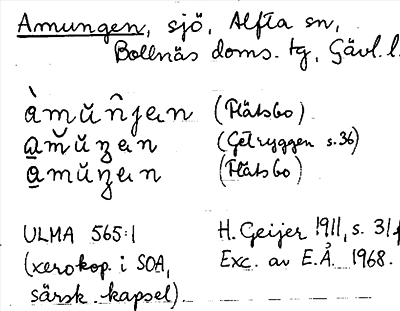 Amungen, sjö, Alfta sn,
Bollnäs doms. tg, Gävl. l.
àmŭn̂jen (Flätsbo)
a̲mŭʒen (Getryggen s.36)
a̲mŭʒen (Flätsbo)
ULMA 565:1 H. Geijer 1911, s. 31f
(xerokop. i SOA, Exc. av E.Å. 1968.
särsk. kapsel).